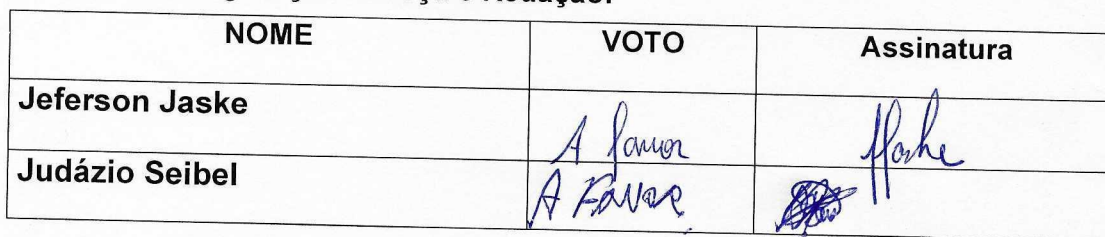 NOME VOTO Assinatura
Jeferson Jaske A favor Jaske
Judázio Seibel A FAVOR